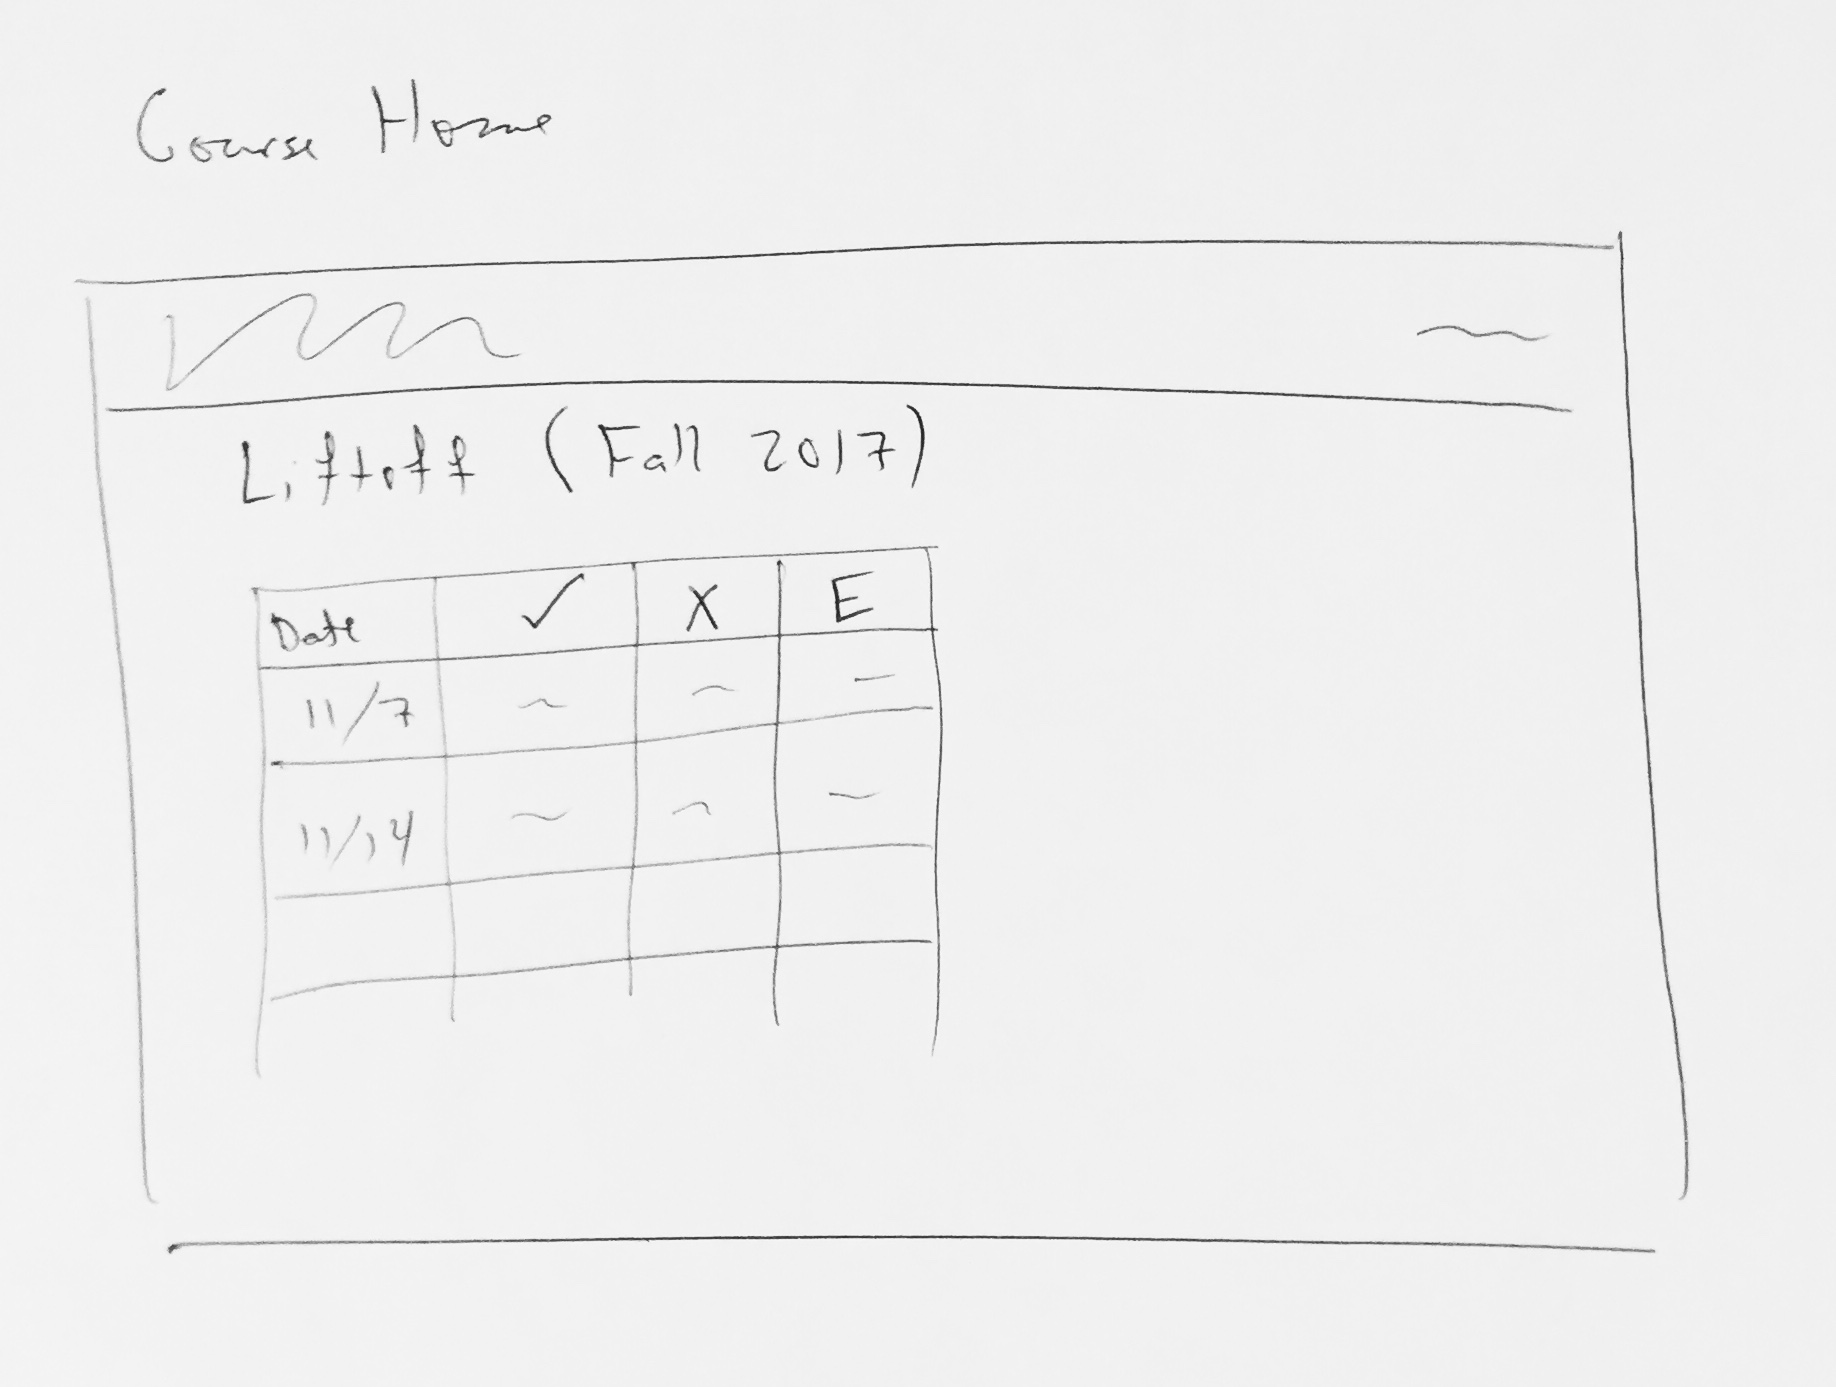 Course Home
Liftoff (Fall 2017)
Date ✓ X E
11/7
11/14